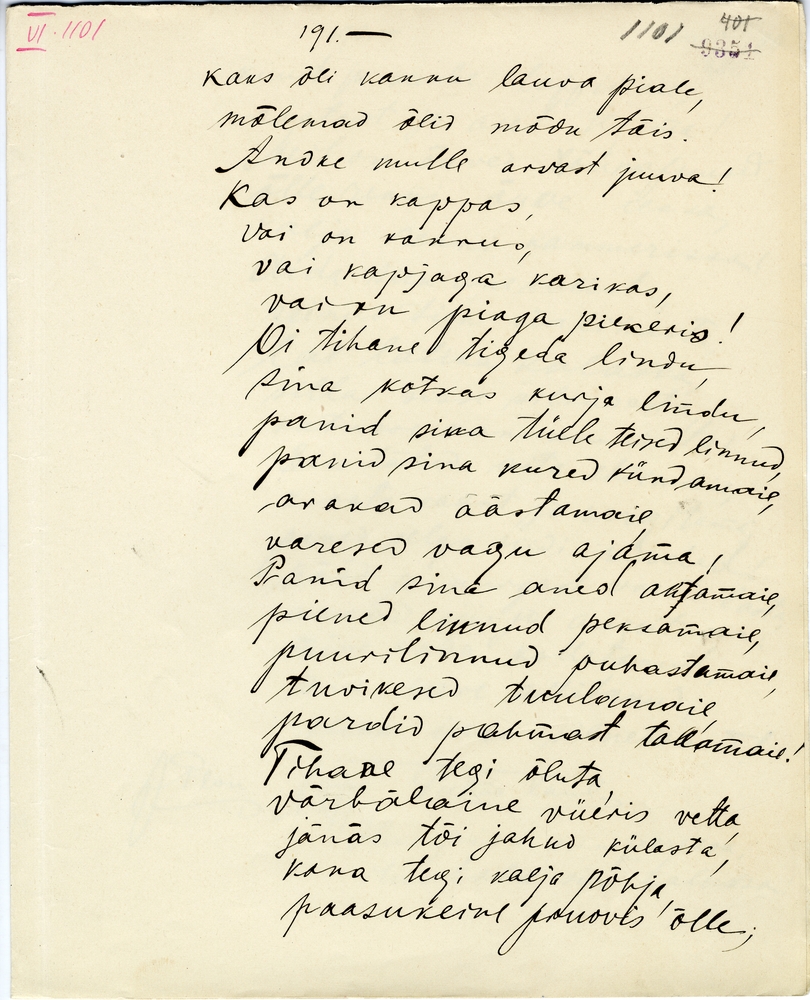 VI · 1101
191. —
1101
401
9351
Kaks õli kannu lauva piale,
mõlemad õlid mõdu täis.
Andke mulle arvast juuva!
Kas on kappas,
vai on kannus,
vai kapjaga karikas,
vai on piaga piekeris!
Oi tihane tigeda lindu,
sina kotkas kurja lindu,
panid sina tüelle teised linnud,
panid sina kured kündamaie,
arakad äästamaie,
varesed vagu ajama!
Panid sina aned ahtamaie,
piened linnud peksamaie,
puurilinnud puhastamaie,
tuvikesed tuulamaie,
pardid pahmast tallamaie!
Tihane tegi õluta,
värbälaine vüeris vetta,
jänäs tõi jahud külasta,
kana tegi kalja põhja,
paasukeine pruovis õlle;